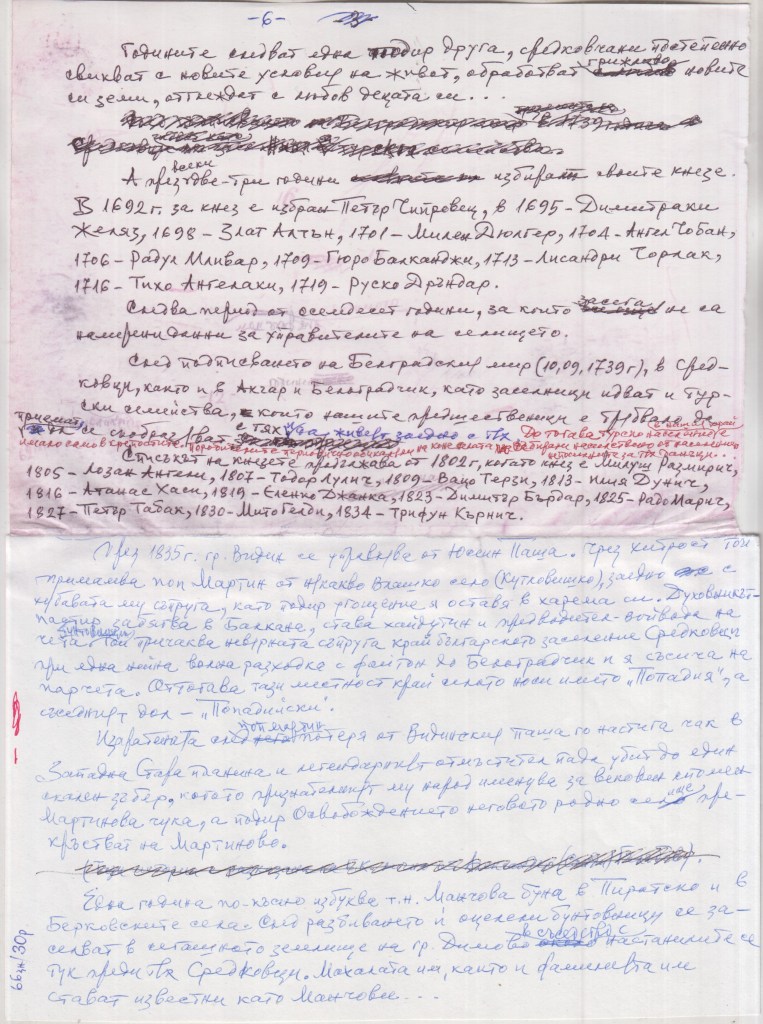 -6-
Годините следват една подир друга, средковчани постепенно
свикват с новите условия на живот, обработват грижливо новите
си земи, отглеждат с любов децата си...
А през всеки две-три години избират своите кнезе.
В 1692 г. за кнез е избран Петър Чипровец, в 1695 - Димитраки
Желяз, 1698 - Злат Алчън, 1701 - Милен Дюлгер, 1704 - Ангел Чобан,
1706 - Радул Мливар, 1709 - Гюро Балканджи, 1713 - Лисандри Чорлак,
1716 - Тихо Ангелаки, 1719 - Руско Дръндар.
Следва период от осемдесет години, за които засега не са
намерени данни за управителите на селището.
След подписването на Белградския мир (10.09.1739 г), в Сред-
ковци, както и в Акчар и Белоградчик, като заселници идват и тур-
ски семейства, с които нашите предшественици е трябвало да
приемат се съобразяват с тях и да живеят заедно с тях До тогава турско население е
имало само в крепостите.
Списъкът на кнезете продължава от 1802 г, когато кнез е Милуш Размирич,
1805 - Лозан Ангели, 1807 - Тодор Лулич, 1809 - Вацо Терзи, 1813 - Илия Дунич,
1816 - Атанас Хаси, 1819 - Еленко Джанка, 1823 - Димитър Бърдар, 1825 - Радо Марич,
1827 - Петър Табак, 1830 - Мито Гегби, 1834 - Трифун Кърнич.
През 1835 г. гр. Видин се управлява от Юсеин Паша. Чрез хитрост той
примамва поп Мартин от някакво влашко село (Кутловишко), заедно с
хубавата му съпруга, като подир угощение я оставя в харема си. Духовникът-
пастир забягва в Балкана, става хайдутин и предводител-войвода на
бунтовници чета. Той причаква неверната съпруга край българското заселение Средковци
при една нейна волна разходка с файтон до Белоградчик и я съсича на
парчета. Оттогава тази местност край селото носи името „Попадия", а
съседният дол - „Попадийски".
Изпратената след поп Мартин потеря от Видинския паша го настига чак в
Западна Стара планина и легендарният отмъстител пада убит до един
скален зъбер, който признателният му народ именува за вековен спомен
Мартинова чука, а подир Освобождението неговото родно селище пре-
кръстват на Мартиново.
Една година по-късно избухва т.н. Манчова буна в Пиротско и в
Берковските села. След разбиването ѝ оцелели бунтовници се за-
селват в сегашното землище на гр. Димово в съседство с настанилите се
тук преди тях Средковци. Махалата им, както и фамилията им
стават известни като Манчови...
66зн/30р